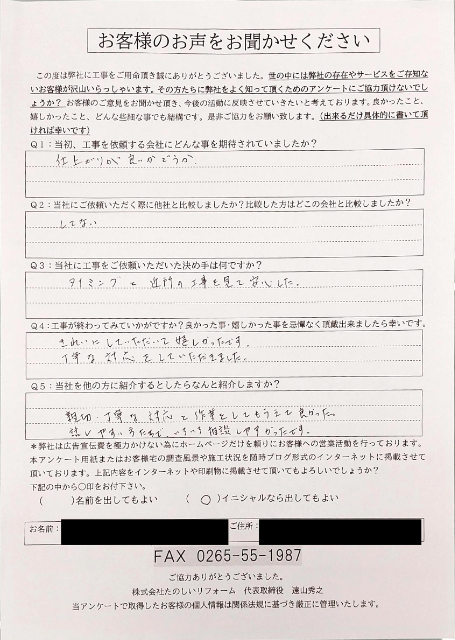 お客様のお声をお聞かせください
この度は弊社に工事をご用命頂き誠にありがとうございました。世の中には弊社の存在やサービスをご存知ない
お客様が沢山いらっしゃいます。その方たちに弊社をよく知って頂くためのアンケートにご協力頂けないでし
ょうか? お客様のご意見をお聞かせ頂き、今後の活動に反映させていきたいと考えております。良かったこと、
嬉しかったこと、どんな些細な事でも結構です。是非ご協力をお願い致します。(出来るだけ具体的に書いて頂
ければ幸いです)
Q1:当初、工事を依頼する会社にどんな事を期待されていましたか?
仕上がりが良いかどうか
Q2:当社にご依頼いただく際に他社と比較しましたか?比較した方はどこの会社と比較しましたか?
してない
Q3:当社に工事をご依頼いただいた決め手は何ですか?
タイミングと近所の工事を見て安心した。
Q4:工事が終わってみていかがですか?良かった事・嬉しかった事を忌憚なく頂戴出来ましたら幸いです。
きれいにしていただいて嬉しかったです。
丁寧な対応をしていただきました。
Q5:当社を他の方に紹介するとしたらなんと紹介しますか?
親切・丁寧な対応と作業をしてもらえて良かった。
話しやすい 相談しやすかったです。
*弊社は広告宣伝費を極力かけない為にホームページだけを頼りにお客様への営業活動を行っております。
本アンケート用紙またはお客様宅の調査風景や施工状況を随時ブログ形式のインターネットに掲載させて
頂いております。上記内容をインターネットや印刷物に掲載させて頂いてもよろしいでしょうか?
下記の中から○印をお付下さい。
( )名前を出してもよい ( ○ )イニシャルなら出してもよい
お名前: ご住所:
FAX 0265-55-1987
ご協力ありがとうございました。
株式会社たのしいリフォーム 代表取締役 遠山秀之
当アンケートで取得したお客様の個人情報は関係法規に基づき厳正に管理いたします。